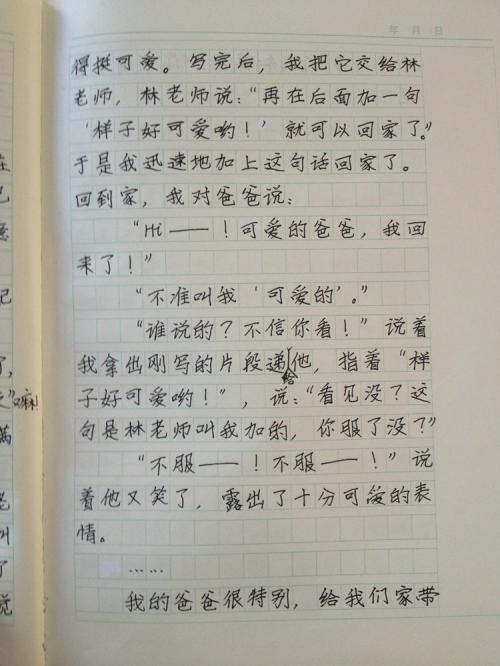 年 月 日
得挺可爱。写完后，我把它交给林
老师，林老师说：“再在后面加一句
‘样子好可爱哟！’就可以回家了。”
于是我迅速地加上这句话回家了。
回到家，我对爸爸说：
“Hi——！可爱的爸爸，我回
来了！”
“不准叫我‘可爱的’。”
“谁说的？不信你看！”说着
我拿出刚写的片段递给他，指着“样
子好可爱哟！”，说：“看见没？这
句是林老师叫我加的，你服了没？”
“不服——！不服——！”说
着他又笑了，露出了十分可爱的表
情。
……
我的爸爸很特别，给我们家带